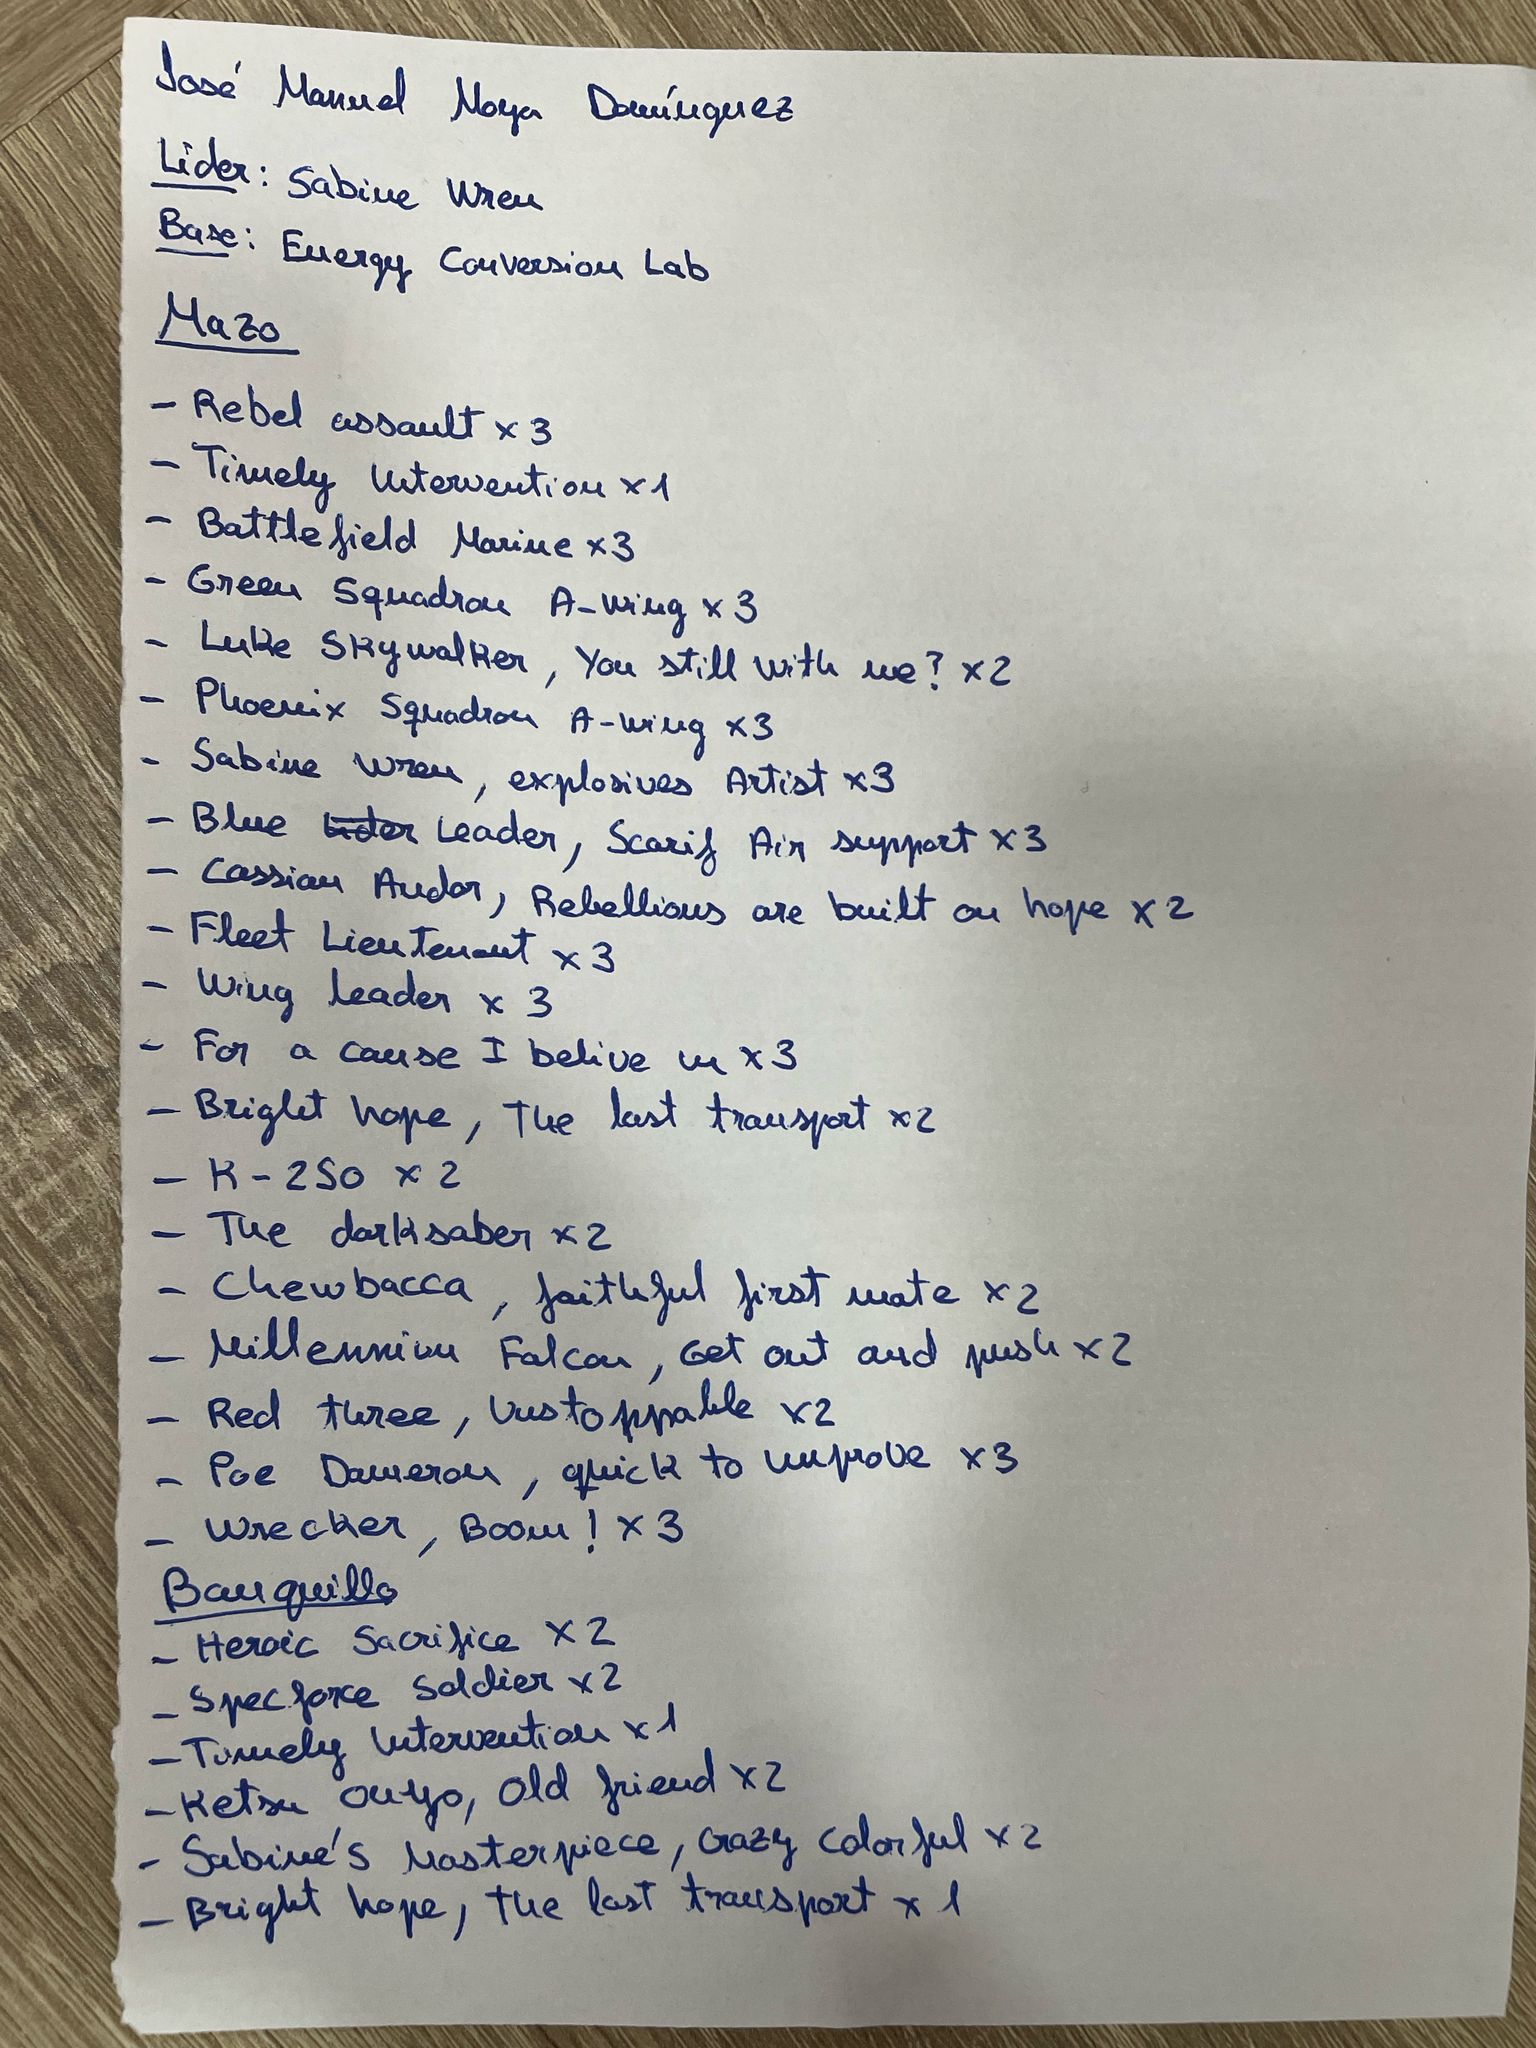 José Manuel Moya Domínguez
Lider: Sabine Wren
Base: Energy Conversion Lab
Mazo
- Rebel assault x3
- Timely Intervention x1
- Battlefield Marine x3
- Green Squadron A-wing x3
- Luke Skywalker, You still with me? x2
- Phoenix Squadron A-wing x3
- Sabine Wren, explosives Artist x3
- Blue Leader, Scarif Air support x3
- Cassian Andor, Rebellions are built on hope x2
- Fleet Lieutenant x3
- Wing leader x 3
- For a cause I belive in x3
- Bright hope, The last transport x2
- K-2SO x2
- The darksaber x2
- Chewbacca, faithful first mate x2
- Millennium Falcon, Get out and push x2
- Red three, Unstoppable x2
- Poe Dameron, quick to improve x3
- Wrecker, Boom! x3
Banquillo
- Heroic Sacrifice x2
- Specforce Soldier x2
- Timely Intervention x1
- Ketsu Onyo, Old friend x2
- Sabine's Masterpiece, Crazy Colorful x2
- Bright hope, The last transport x 1